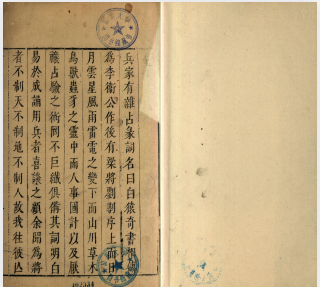 兵家有雜占彖詞名曰白猿奇書相傳
為李衛公作後有梁將劉鄩序上而日
月雲星風雨雷電之變下而山川草木
鳥獸蟲豸之靈中而人事國計以及厭
禳占驗之術罔不巨纖俱備其詞明白
易於成誦用兵者喜讀之顧余聞為將
者不制天不制地不制人故我往彼亡